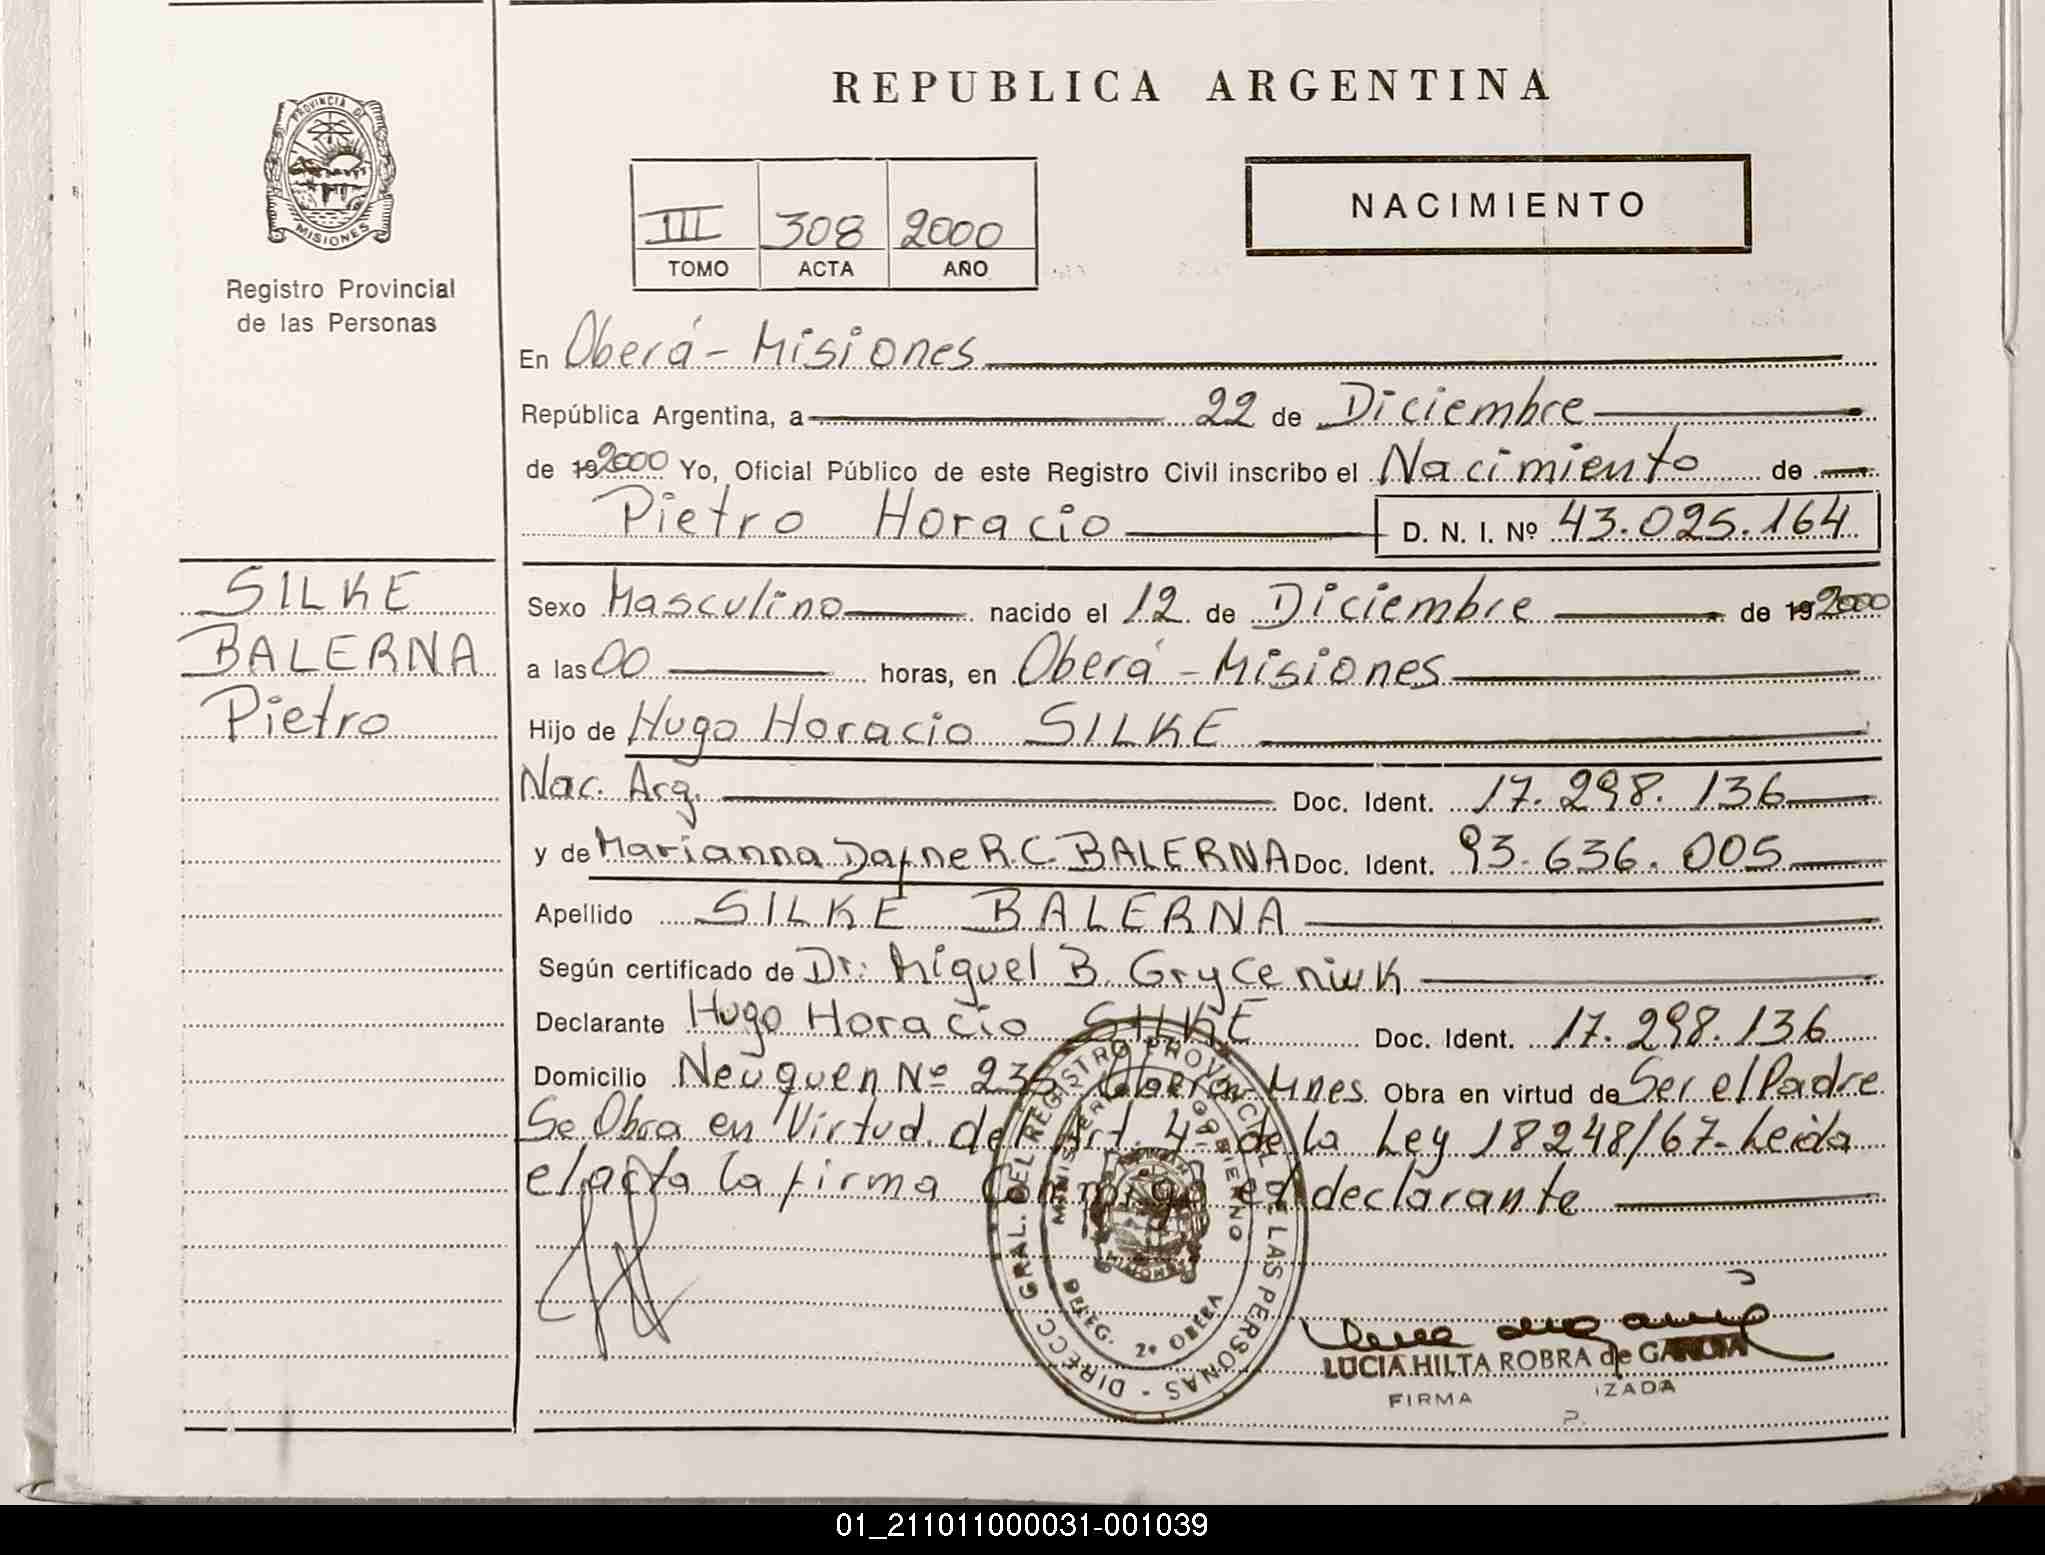 REPUBLICA ARGENTINA
PROVINCIA DE
MISIONES
Registro Provincial
de las Personas
III 308 2000
TOMO ACTA AÑO
NACIMIENTO
En Oberá - Misiones
República Argentina, a 22 de Diciembre
de 19 2000 Yo, Oficial Público de este Registro Civil inscribo el Nacimiento de
Pietro Horacio D. N. I. Nº 43.025.164
SILKE
BALERNA
Pietro
Sexo Masculino nacido el 12 de Diciembre de 19 2000
a las 00 horas, en Oberá - Misiones
Hijo de Hugo Horacio SILKE
Nac. Arg. Doc. Ident. 17.298.136
y de Marianna Dafne R.C. BALERNA Doc. Ident. 93.636.005
Apellido SILKE BALERNA
Según certificado de Dr. Miguel B. Gryceniuk
Declarante Hugo Horacio SILKE Doc. Ident. 17.298.136
Domicilio Neuquen Nº 235 Oberá Mnes. Obra en virtud de Ser el Padre
Se Obra en Virtud del Art. 4º de la Ley 18248/67 - Leida
el acta la firma Conmigo el declarante
DIRECC. GRAL. DEL REGISTRO PROVINCIAL DE LAS PERSONAS
MINISTERIO GOBIERNO
DELEG. 2º OBERA
LUCIA HILTA ROBRA de GARCIA
FIRMA IZADA
01_211011000031-001039